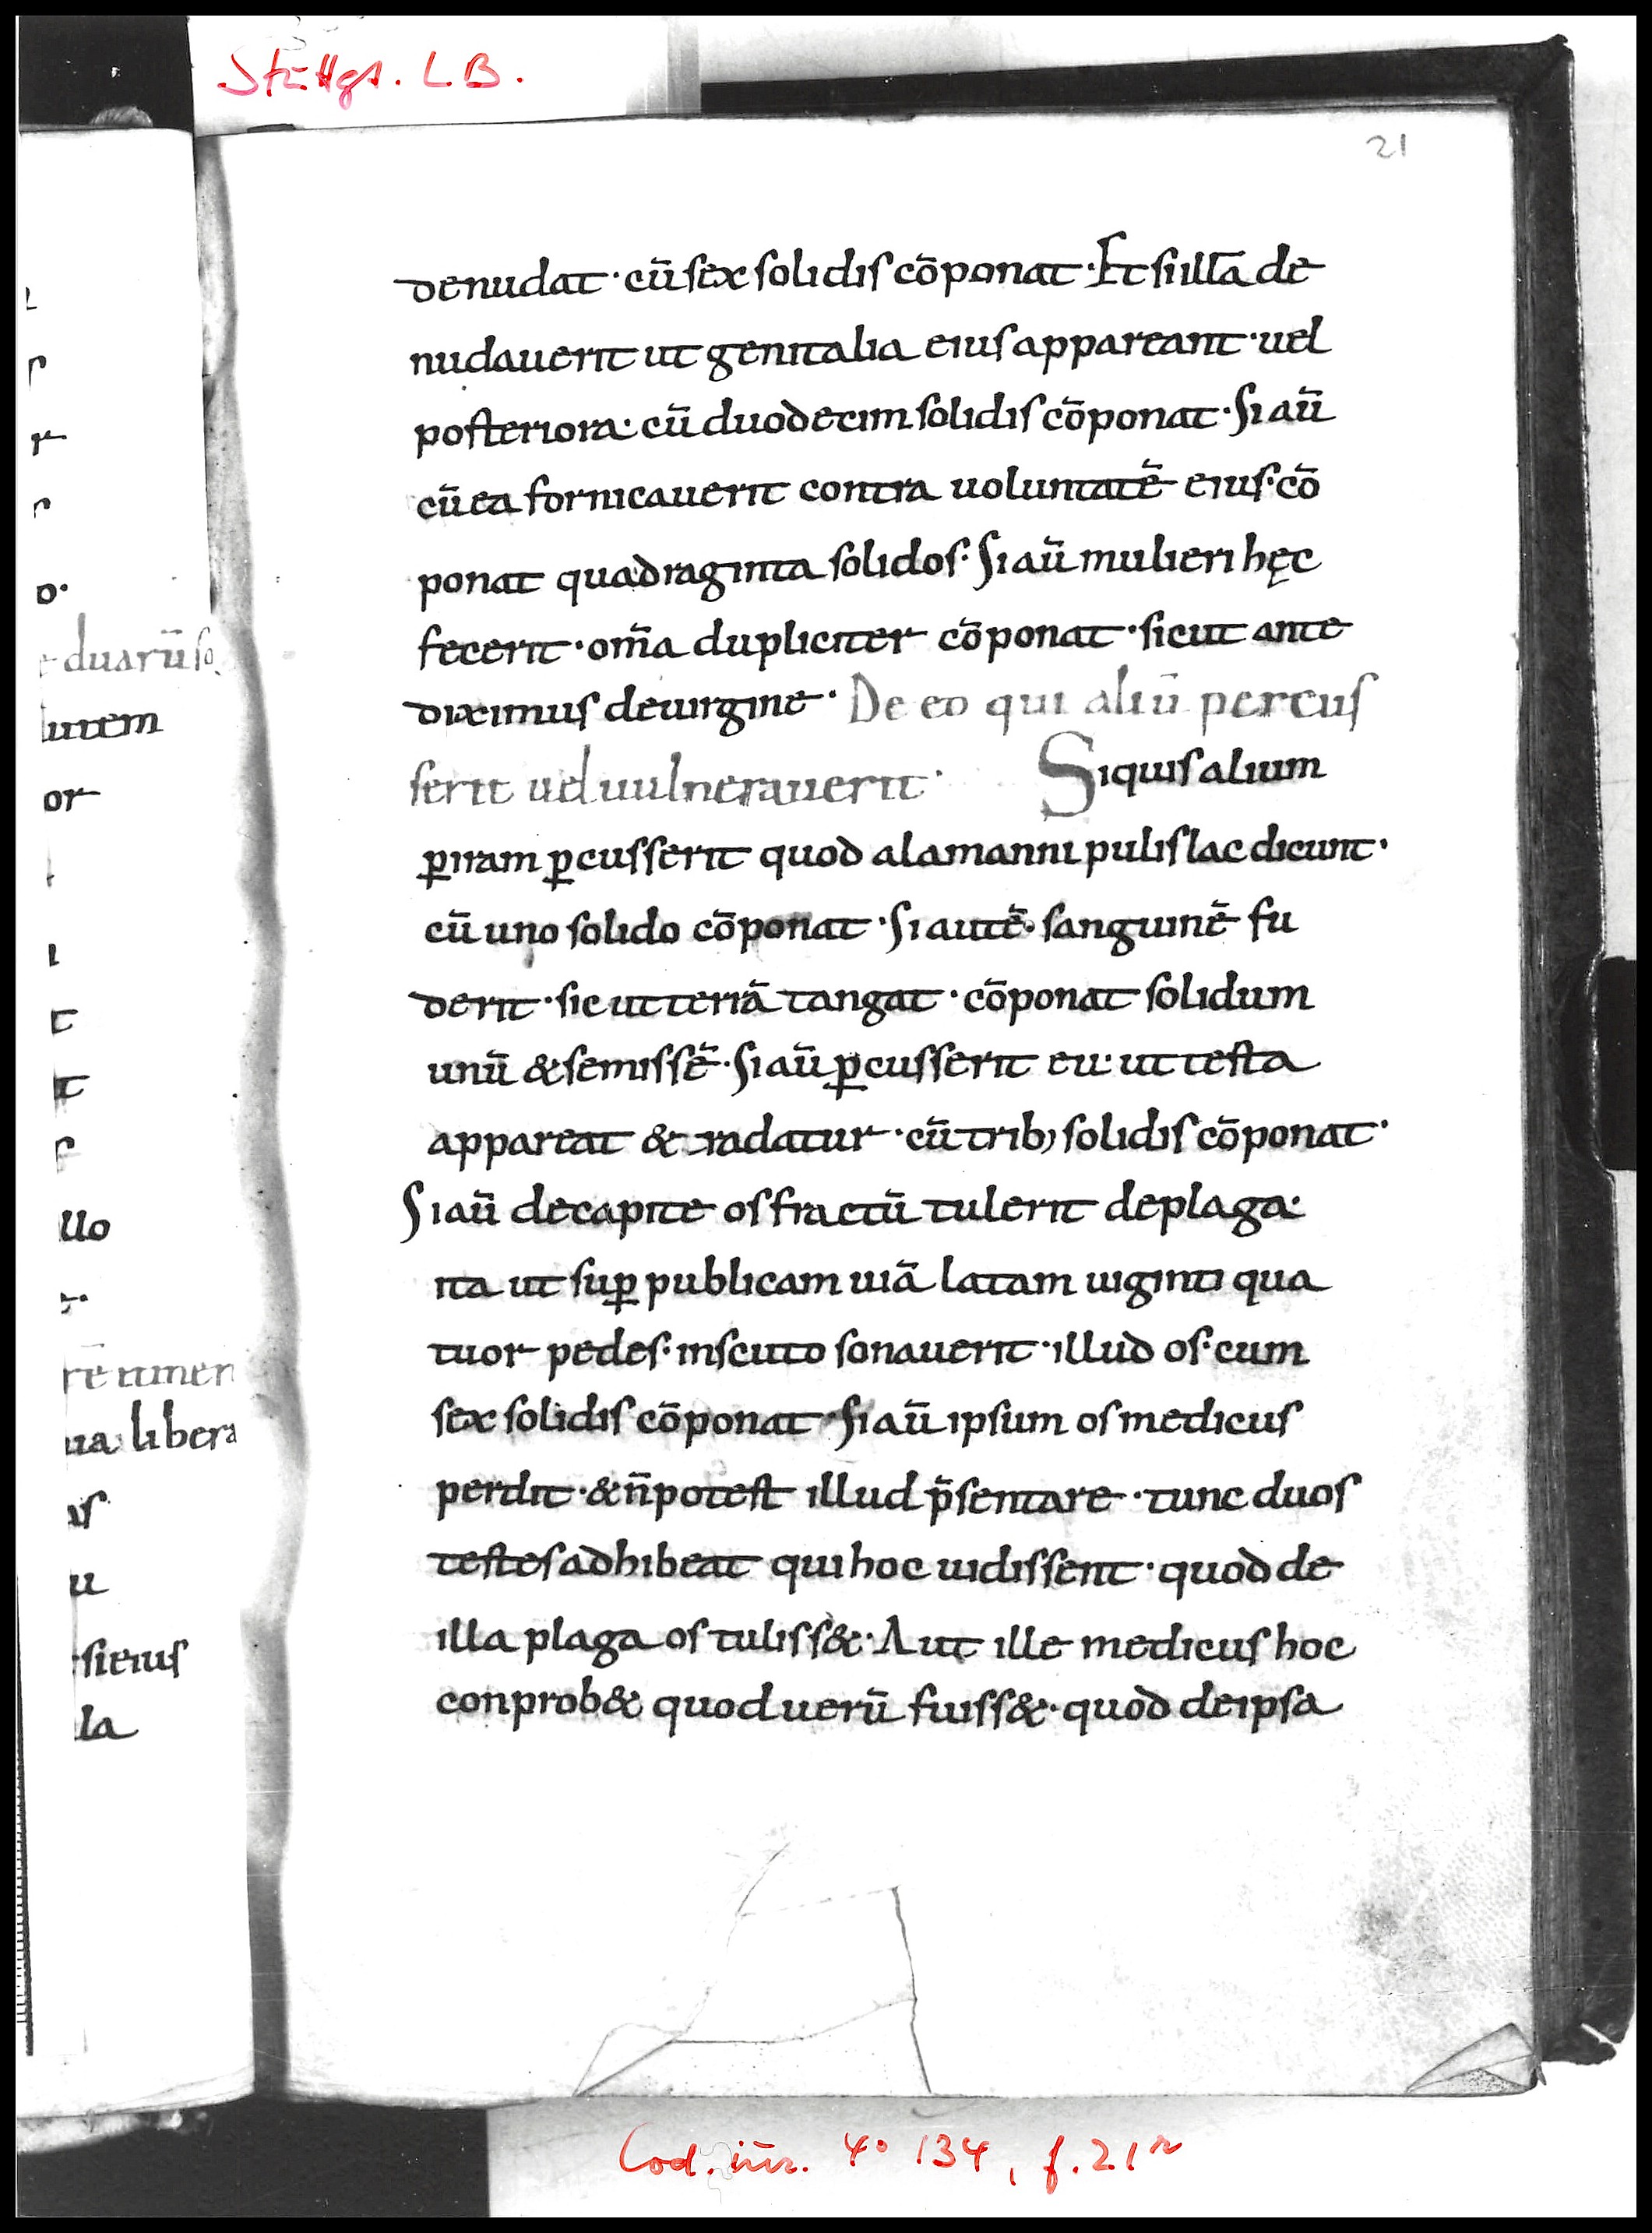 Stuttgt. LB.
21
denudat · cū sex solidis cōponat · Et si illā de
nudauerit ut genitalia eius appareant · uel
posteriora · cū duodecim solidis cōponat · Si aū
cū ea fornicauerit contra uoluntatē eius · cō
ponat quadraginta solidos · Si aū mulieri hęc
fecerit · om̄a dupliciter cōponat · sicut ante
diximus de uirgine · De eo qui aliū percus
serit uel uulnerauerit · Si quis alium
ꝑ iram ꝑcusserit quod alamanni pulislac dicunt ·
cū uno solido cōponat · Si autē · sanguinē fu
derit · sic ut terrā tangat · cōponat solidum
unū & semissē · Si aū ꝑcusserit eu · ut testa
appareat & radatur · cū trib; solidis cōponat ·
Si aū de capite os fractū tulerit de plaga ·
ita ut suꝑ publicam uiā latam uiginti qua
tuor pedes · in scuto sonauerit · illud os · cum
sex solidis cōponat · Si aū ipsum os medicus
perdit · & n̄ potest illud p̄sentare · tunc duos
testes adhibeat qui hoc uidissent · quod de
illa plaga os tuliss& · Aut ille medicus hoc
conprob& quod uerū fuiss& · quod de ipsa
duarū so
or
llo
ua libera
si eius
la
Cod. iur. 4° 134, f. 21r